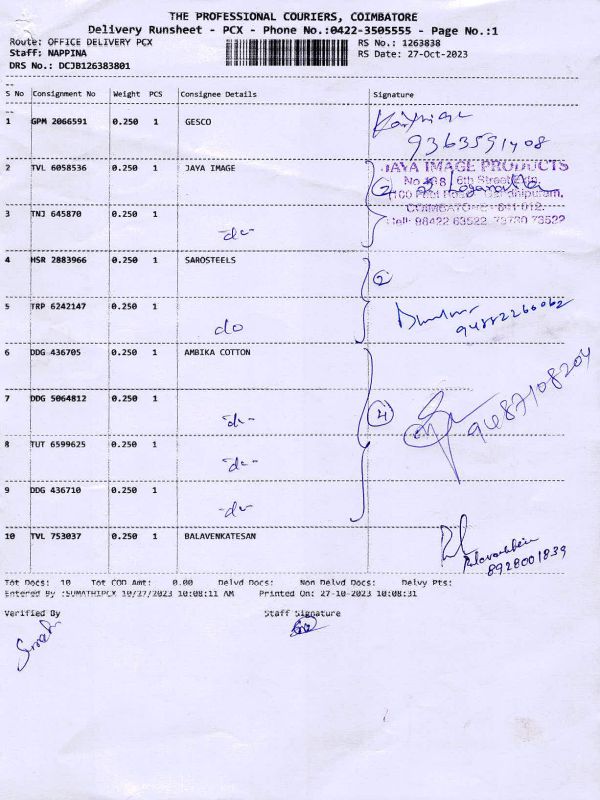 THE PROFESSIONAL COURIERS, COIMBATORE
Delivery Runsheet - PCX - Phone No.:0422-3505555 - Page No.:1
Route: OFFICE DELIVERY PCX RS No.: 1263838
Staff: NAPPINA RS Date: 27-Oct-2023
DRS No.: DCJB126383801
S No Consignment No Weight PCS Consignee Details Signature
1 GPM 2066591 0.250 1 GESCO
9363591408
2 TVL 6058536 0.250 1 JAYA IMAGE 2
JAYA IMAGE PRODUCTS
COIMBATORE - 641 012.
Cell: 98422 63522,
3 TNJ 645870 0.250 1
-do-
4 HSR 2883966 0.250 1 SAROSTEELS
2
5 TRP 6242147 0.250 1
do
6 DDG 436705 0.250 1 AMBIKA COTTON
9487108204
7 DDG 5064812 0.250 1 4
-do-
8 TUT 6599625 0.250 1
-do-
9 DDG 436710 0.250 1
-do-
10 TVL 753037 0.250 1 BALAVENKATESAN
8928001839
Tot Docs: 10 Tot COD Amt: 0.00 Delvd Docs: Non Delvd Docs: Delvy Pts:
Entered By :SUMATHIPCX 10/27/2023 10:08:11 AM Printed On: 27-10-2023 10:08:31
Verified By Staff Signature